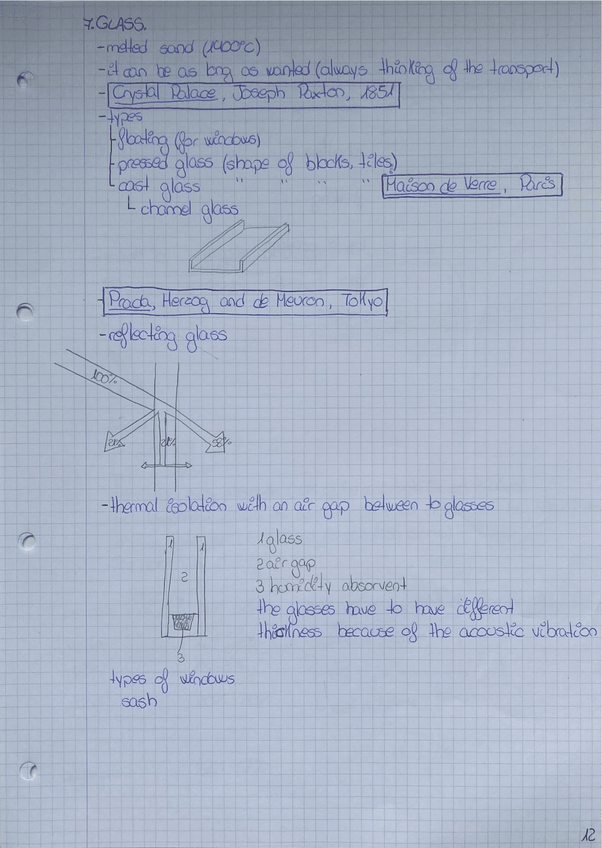 7. GLASS.
- melted sand (1400°C)
- it can be as long as wanted (always thinking of the transport)
- Crystal Palace, Joseph Paxton, 1851
- types
floating (for windows)
pressed glass (shape of blocks, tiles)
cast glass " " " " Maison de Verre, París
channel glass
- Prada, Herzog and de Meuron, Tokyo
- reflecting glass
100%
21% 58%
- thermal isolation with an air gap between to glasses
1 1 1 glass
2 2 air gap
3 homidity absorvent
the glasses have to have different
thickness because of the acoustic vibration
3
types of windows
sash
12